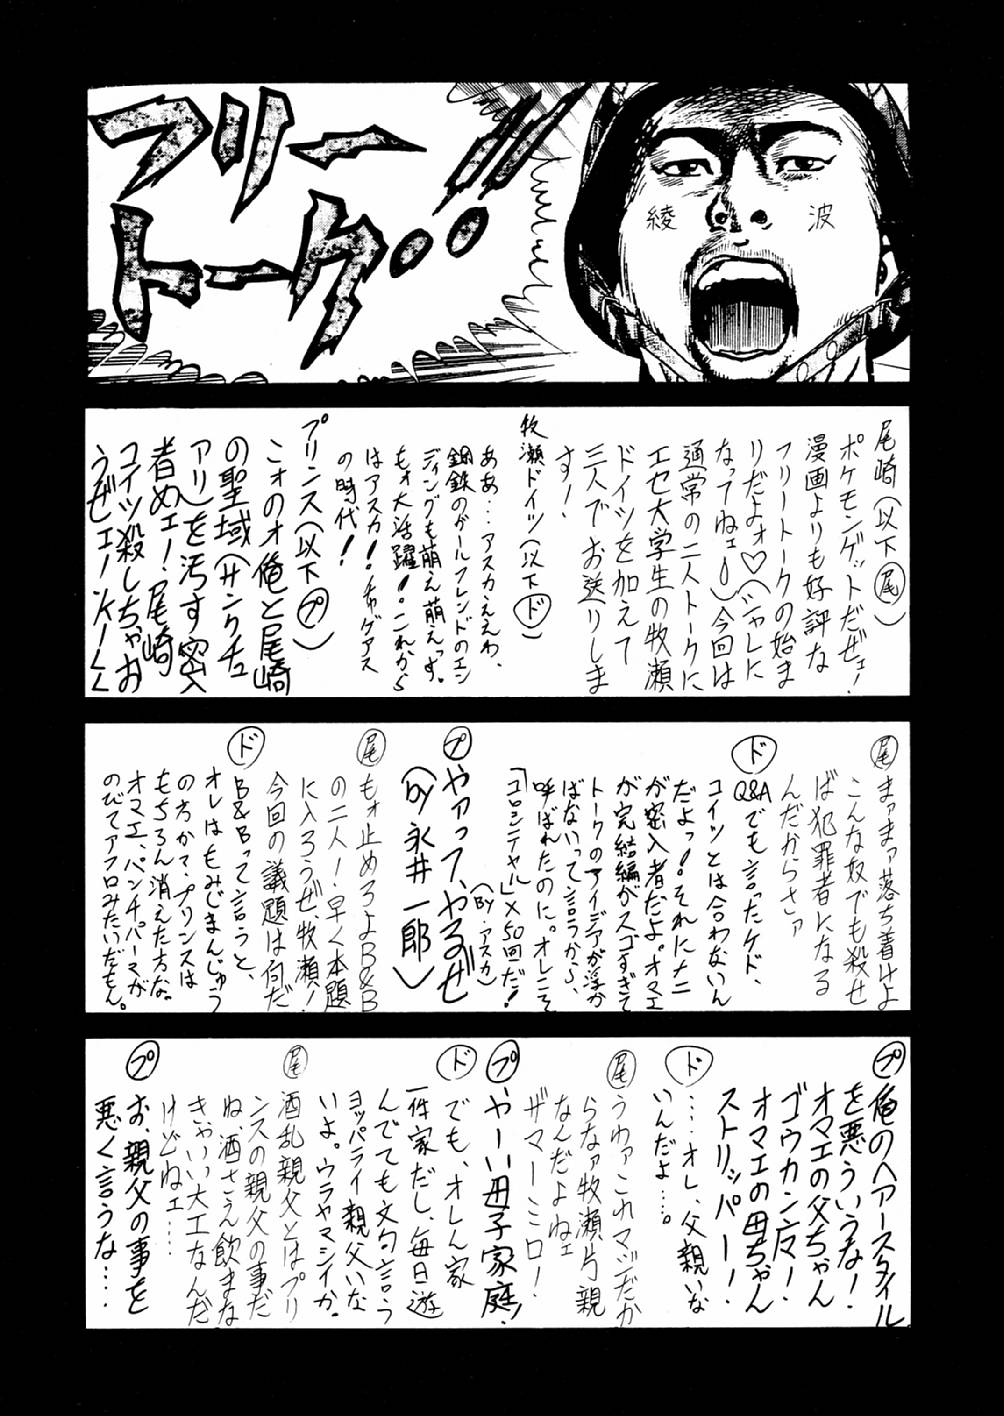 フリー
トーク!!
綾 波
尾崎(以下尾)
ポケモンゲットだぜェ!
漫画よりも好評な
フリートークの始ま
りだよォ♡(シャレに
なってねェ)今回は
通常の二人トークに
エセ大学生の牧瀬
ドイツを加えて
三人でお送りしま
す!
牧瀬ドイツ(以下ド)
ああ…アスカええわ、
鋼鉄のガールフレンドのエン
ディングも萌え萌えっす。
もォ大活躍!これから
はアスカ!チャゲアス
の時代!
プリンス(以下プ)
こォのォ俺と尾崎
の聖域(サンクチュ
アリ)を汚す密入
者めェ!尾崎
コイツ殺しちゃお
うぜェー!
尾
まァまァ落ち着けよ
こんな奴でも殺せ
ば犯罪者になる
んだからさァ
ド
Q&Aでも言ったケド、
コイツとは合わないん
だよっ!それにナニ
が密入者だよ。オマエ
が完結編がスゴすぎて
トークのアイデアが浮か
ばないって言うから、
呼ばれたのに。オレこそ
「コロシテヤル」×50回だ!
(Byアスカ)
プ
やァってやるぜ
(by永井一郎)
尾
もォ止めろよB&B
の二人!早く本題
に入ろうぜ、牧瀬!
今回の議題は何だ
ド
B&Bって言うと、
オレはもみじまんじゅう
の方かで、プリンスは
もちろん消えた方な。
オマエ、パンチパーマが
のびてアフロみたいだもん。
プ
俺のヘアースタイル
を悪ういうな!
オマエの父ちゃん
ゴウカン魔!
オマエの母ちゃん
ストリッパー!
ド
…オレ、父親いな
いんだよ…。
尾
うわァこれマジだか
らなァ牧瀬片親
なんだよねェ
ザマーミロ!
プ
やーい母子家庭!
ド
でも、オレん家
一件家だし、毎日遊
んでても文句言う
ヨッパライ親父いな
いよ。ウラヤマシイか。
尾
酒乱親父とはプリ
ンスの親父の事だ
ね、酒さえ飲まな
きゃいい大工なんだ
けどねェ……
プ
お、親父の事を
悪く言うな……